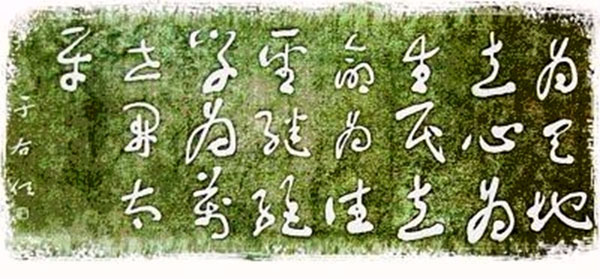 為天地
立心為
生民立
命為往
聖繼絕
學為萬
世開太
平
于右任